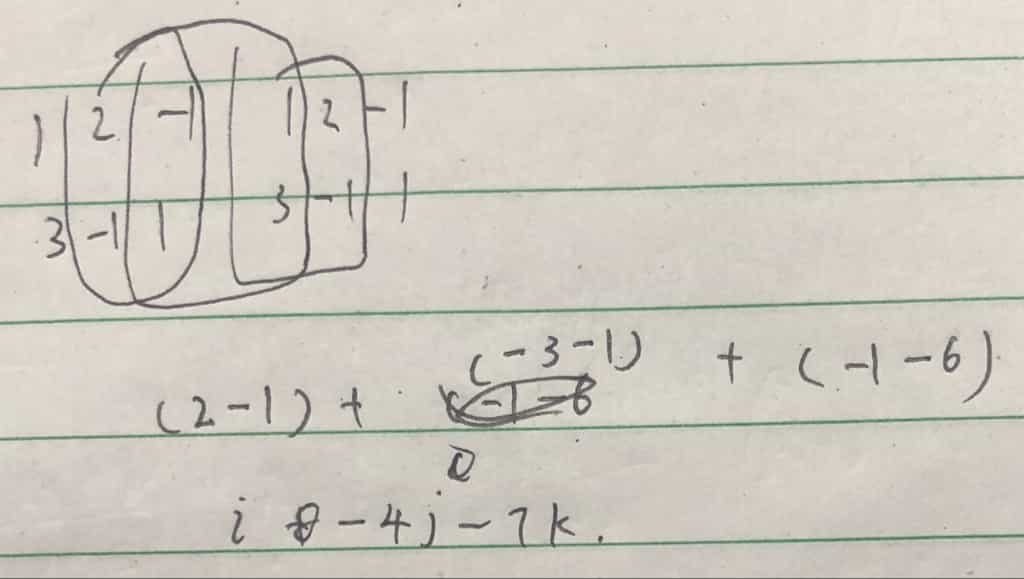 1 2 -1 1 2 -1
3 -1 1 3 -1 1
(-3-1) + (-1-6)
(2-1) +
i - 4j - 7k.